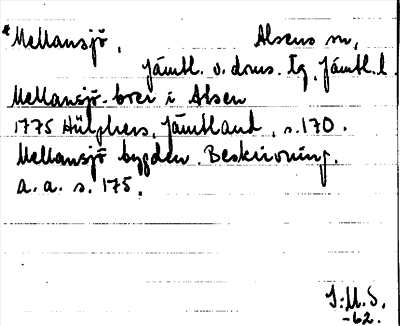 *Mellansjö, Alsens sn,
Jämtl. v. doms. tg, Jämtl. l.
Mellansjö-boer i Alsen
1775 Hülphers, Jämtland, s. 170.
Mellansjö bygden. Beskrivning.
a. a. s. 175.
J:M.S.
-62.